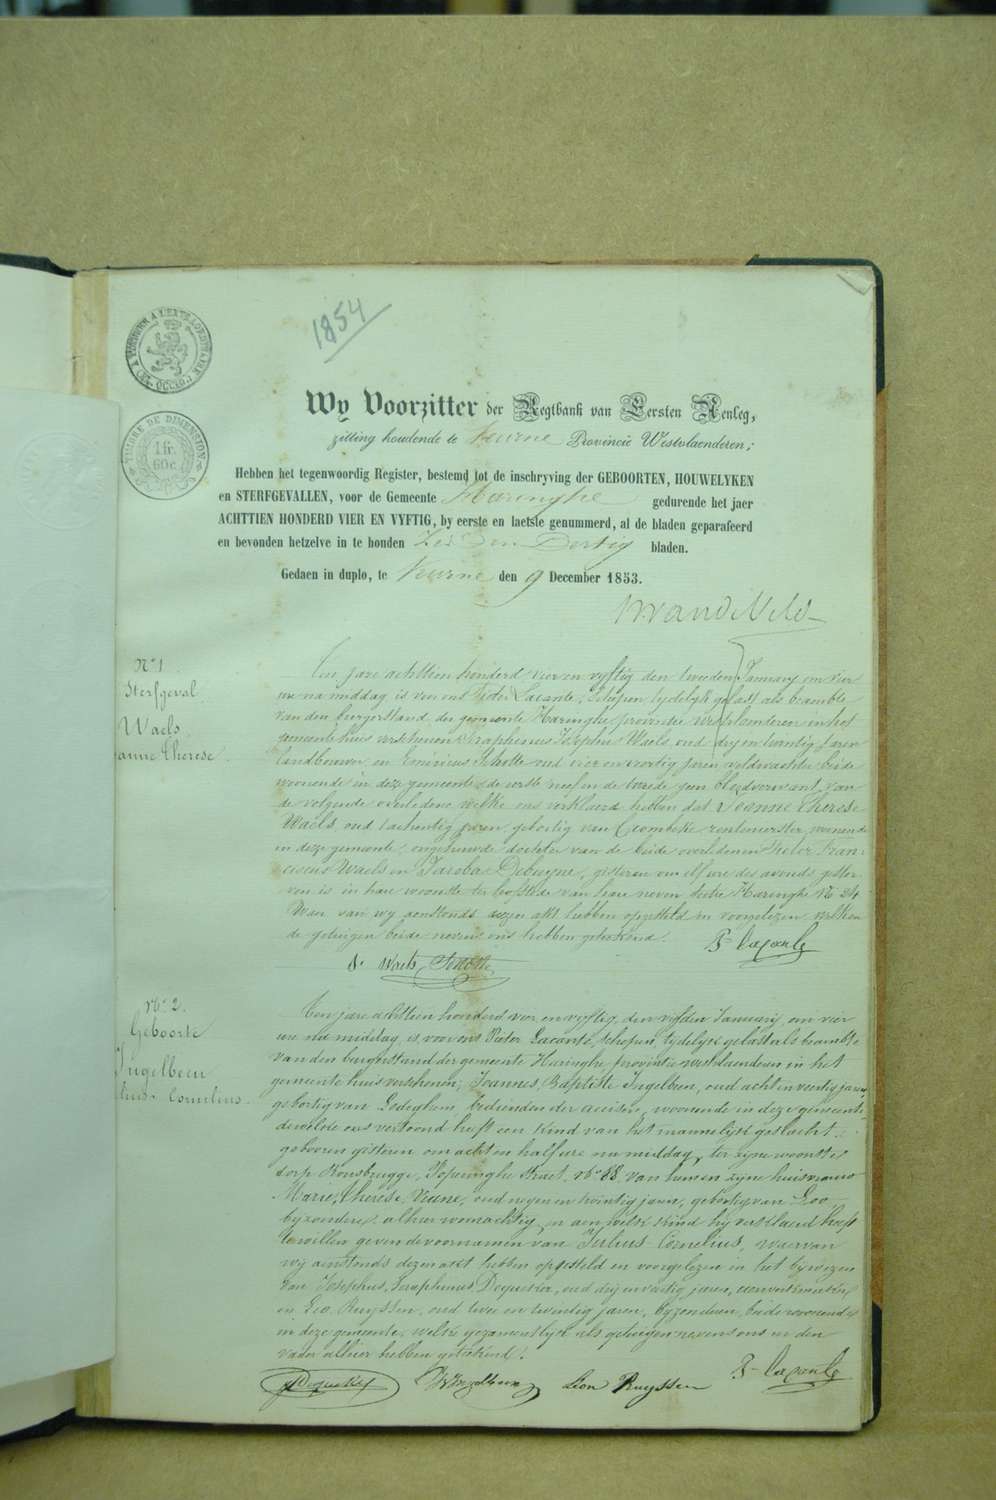 1854
TIMBRE DE DIMENSION
1 fr.
60 c.
Wy Voorzitter der Regtbank van Eersten Aenleg,
zitting houdende te Veurne Provincie Westvlaenderen;
Hebben het tegenwoordig Register, bestemd tot de inschryving der GEBOORTEN, HOUWELYKEN
en STERFGEVALLEN, voor de Gemeente Haringhe gedurende het jaer
ACHTTIEN HONDERD VIER EN VYFTIG, by eerste en laetste genummerd, al de bladen geparafeerd
en bevonden hetzelve in te houden Zes en Dertig bladen.
Gedaen in duplo, te Veurne den 9 December 1853.
No 1
Sterfgeval
Waels
anne Therese
Ten jare achttien honderd vier en vyftig den tweeden January om vier
ure na middag is voor ons Pieter Lacante, Schepen, tydelyk gelast als beambte
van den burgerstand der gemeente Haringhe provintie westvlaenderen in het
gemeente huis verschenen Seraphinus Josephus Waels oud dry en twintig jaren
landbouwer en Schotte oud vier en veertig jaren veldwachter beide
woonende in deze gemeente de eerste neef en de tweede geen bloedverwant van
de volgende overledene welke ons verklaerd hebben dat Joanne Therese
Waels, oud tachentig jaren geboortig van Crombeke rentenierster, woonende
in deze gemeente, ongehuwde dochter van de beide overledenen Pieter Fran-
ciscus Waels en Jacoba Debuyne, gisteren om elf ure des avonds gestor
ven is in hare woonste ter hofstede van haren neven sectie Haringhe No 24
Waer van wy aenstonds dezen akt hebben opgesteld en voorgelezen welken
de getuigen beide nevens ons hebben geteekend.
P Lacante
S. Waels Schotte
No 2.
Geboorte
Ingelbeen
lius Cornelius.
Ten jare achttien honderd vier en vyftig, den vyfden January, om vier
ure na middag, is voor ons Pieter Lacante, schepen, tydelyk gelast als beambte
van den burgerstand der gemeente Haringhe, provintie westvlaenderen in het
gemeente huis verschenen, Joannes, Baptiste Ingelbeen, oud acht en veertig jaren,
geboortig van Ledeghem, bedienden der accisen, woonende in deze gemeente
dewelke ons vertoond heeft een kind van het mannelyk geslacht
geboren gisteren om acht en half ure na middag, ter zyne woonste
dorp Rousbrugge, Poperinghe straet, No 68, van hem en zyne huisvrouw
Marie, Therese, oud negen en twintig jaren, geboortig van Loo
byzondere, alhier woonachtig, en aen welk kind hy verklaerd heeft
te willen geven de voornamen van Julius Cornelius, waervan
wy aenstonds dezen akt hebben opgesteld en voorgelezen in het bywezen
van Josephus, Seraphinus Dequeker, oud dry en vertig jaren,
en Leo Ruyssen, oud twee en twintig jaren, byzonderen, beide woonende
in deze gemeente, welke gezamentlyk als getuigen nevens ons en den
vader alhier hebben geteekend.
Dequeker Ingelbeen Léon Ruyssen P Lacante